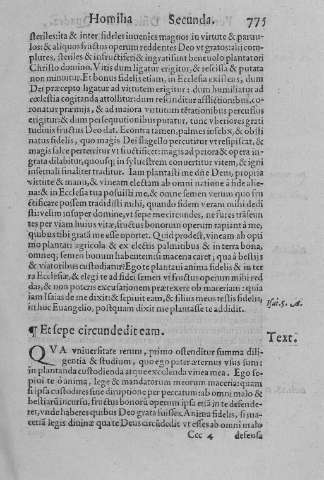 Homilia Secunda. 775
sterilescita & inter fideles iuuenies magnos in virtute & paruulos:
los: & aliquos fructus operum reddentes Deo vt gratos: alii complutes,
steriles & infructiferi & ingratissimi beneuolo plantatori
Christo domino. Vitis dum ligatur erigitur, & rescissa & putata
non minuitur. Et bonus fidelis etiam, in Ecclesia existens, dum
Dei præcepto ligatur ad virtutem erigitur: dum humiliatur ad
cœlestia cogitanda attollitur: dum refunditur afflictionibus, coronatur
præmijs, & ad maiora virtutum
erigitur: & dum persequutionibus putatur, tunc vberiores gratitudinis
tudinis fructus Deo dat. E contra tamen, palmes infelix, & obstinatus
natus fidelis, quo magis Dei flagello percutitur vt resipiscat, &
magis
ingrata
infernali finaliter traditur. Iam plantasti me dne Deus, propria
virtute & manu, & vineam electam ab omni natione
& in Ecclesia tua posuisti me, & omne semen verum quo fructificare
possem tradidisti mihi, quando fidem veram mihi dedisti:
velim insuper domine, vt sepe me circundes, ne fures trāseuntes
per viam huius vitæ, fructus bonorum operum rapiant à me,
quibus tibi gratū me esse oportet. Quid prodest, vineam ab optimo
plantari agricola & ex electis palmitibus & in terra bona,
omneq; semen bonum habentem si maceria caret, qua à bestijs
& viatoribus custodiatur? Ego te plantaui anima fidelis & in terra
Ecclesiæ, & elegi te ad fidei semen vt fructus operum mihi reddas,
& non poteris excusationem prætexere ob maceriam: quia
iam Isaias de me dixit: & sepiuit eam, & filius meus testis fidelis,
in hoc Euangelio, postquam dixit me plantasse te addidit.
Isai. 5. A.
¶ Et sepe circundedit eam.
Text.
QVA vniuersitate rerum, primo ostenditur summa diligentia
& studium, quo ego pater æternus vsus sum:
in plantanda custodienda atque excolenda vinea mea. Ego sepiui
te ô anima, lege & mandatorum meorum maceria: quam
si ipsa custodires sine disruptione per peccatum: ab omni malo &
bestiarū incursu, fructus bonorū operum ipsa etiā in te defenderet,
vnde haberes quibus Deo grata fuisses. Anima fidelis, si maceriā
legis diuinæ qua te Deus circūdedit vt esses ab omni malo
Ccc 4 defensa